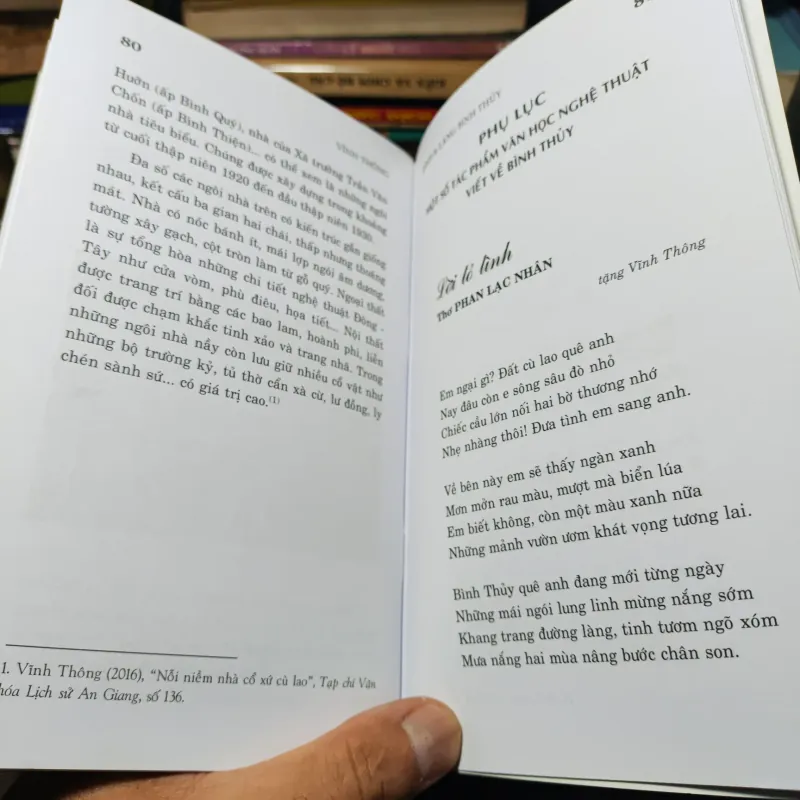 80
VĨNH THÔNG
Huỡn (ấp Bình Quý), nhà của Xã trưởng Trần Văn
Chốn (ấp Bình Thiện)... có thể xem là những ngôi
nhà tiêu biểu. Chúng được xây dựng trong khoảng
từ cuối thập niên 1920 đến đầu thập niên 1930.
Đa số các ngôi nhà trên có kiến trúc gần giống
nhau, kết cấu ba gian hai chái, thấp nhưng thoáng
mát. Nhà có nóc bánh ít, mái lợp ngói âm dương,
tường xây gạch, cột tròn làm từ gỗ quý. Ngoại thất
là sự tổng hòa những chi tiết nghệ thuật Đông -
Tây như cửa vòm, phù điêu, họa tiết... Nội thất
được trang trí bằng các bao lam, hoành phi, liễn
đối được chạm khắc tinh xảo và trang nhã. Trong
những ngôi nhà nầy còn lưu giữ nhiều cổ vật như
những bộ trường kỷ, tủ thờ cẩn xà cừ, lư đồng, ly
chén sành sứ... có giá trị cao.(1)
1. Vĩnh Thông (2016), “Nỗi niềm nhà cổ xứ cù lao”, Tạp chí Văn
hóa Lịch sử An Giang, số 136.
LÀNG BÌNH THỦY
PHỤ LỤC
MỘT SỐ TÁC PHẨM VĂN HỌC NGHỆ THUẬT
VIẾT VỀ BÌNH THỦY
Lời tỏ tình
Thơ PHAN LẠC NHÂN
tặng Vĩnh Thông
Em ngại gì? Đất cù lao quê anh
Nay đâu còn e sông sâu đò nhỏ
Chiếc cầu lớn nối hai bờ thương nhớ
Nhẹ nhàng thôi! Đưa tình em sang anh.
Về bên này em sẽ thấy ngàn xanh
Mơn mởn rau màu, mượt mà biển lúa
Em biết không, còn một màu xanh nữa
Những mảnh vườn ươm khát vọng tương lai.
Bình Thủy quê anh đang mới từng ngày
Những mái ngói lung linh mừng nắng sớm
Khang trang đường làng, tinh tươm ngõ xóm
Mưa nắng hai mùa nâng bước chân son.